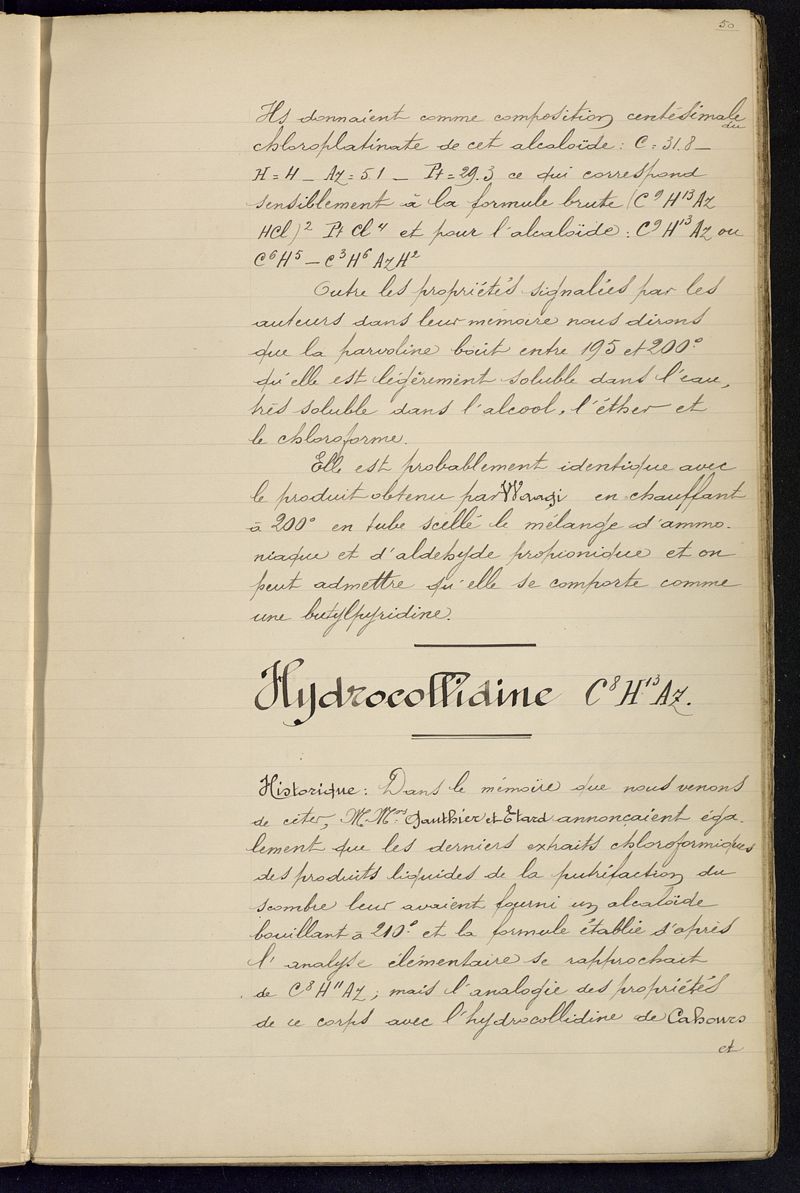 50
Ils donnaient comme composition centésimale du
chloroplatinate de cet alcaloïde : C = 31.8 —
H = 4 — Az = 5.1 — Pt = 29.3 ce qui correspond
sensiblement à la formule brute (C⁹H¹³Az
HCl)² Pt Cl⁴ et pour l'alcaloïde : C⁹H¹³Az ou
C⁶H⁵ — C³H⁶ AzH²
Outre les propriétés signalées par les
auteurs dans leur mémoire nous dirons
que la parvoline bout entre 195 et 200°
qu'elle est légèrement soluble dans l'eau,
très soluble dans l'alcool, l'éther et
le chloroforme.
Elle est probablement identique avec
le produit obtenu par Waagi en chauffant
à 200° en tube scellé le mélange d'ammo-
niaque et d'aldehyde propionique et on
peut admettre qu'elle se comporte comme
une butylpyridine.
Hydrocollidine C⁸H¹³Az.
Historique : Dans le mémoire que nous venons
de citer, M.Mrs Gauthier et Etard annonçaient éga-
lement que les derniers extraits chloroformiques
des produits liquides de la putréfaction du
scombre leur avaient fourni un alcaloïde
bouillant à 210° et la formule établie d'après
l'analyse élémentaire se rapprochait
de C⁸H¹¹Az ; mais l'analogie des propriétés
de ce corps avec l'hydrocollidine de Cahours
et